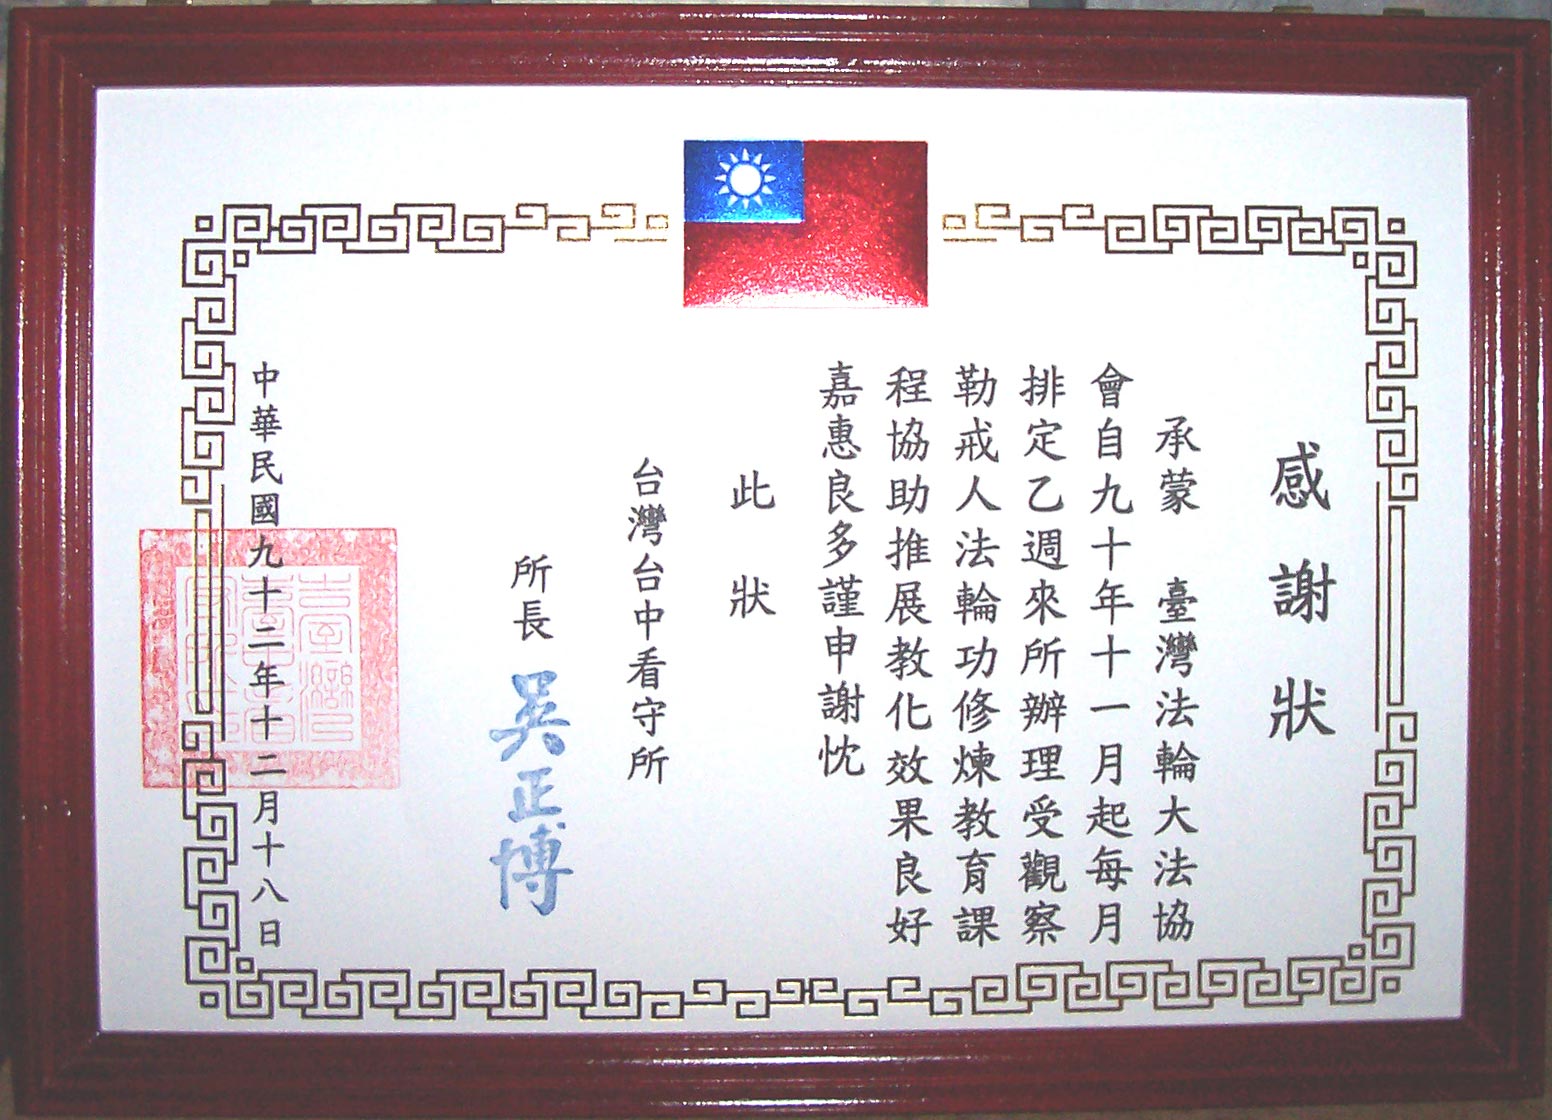 感謝狀
承蒙 臺灣法輪大法協
會自九十年十一月起每月
排定乙週來所辦理受觀察
勒戒人法輪功修煉教育課
程協助推展教化效果良好
嘉惠良多謹申謝忱
此狀
台灣台中看守所
所長 吳正博
中華民國九十二年十二月十八日